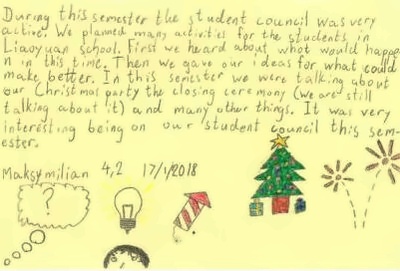 During this semester the student council was very
active. We planned many activities for the students in
Liaoyuan school. First we heard about what would happe
n in this time. Then we gave our ideas for what could
make better. In this semester we were talking about
our Christmas party the closing ceremony (we are still
talking about it) and many other things. It was very
interesting being on our student council this sem-
ester.
Maksymilian 4,2 17/1/2018
?